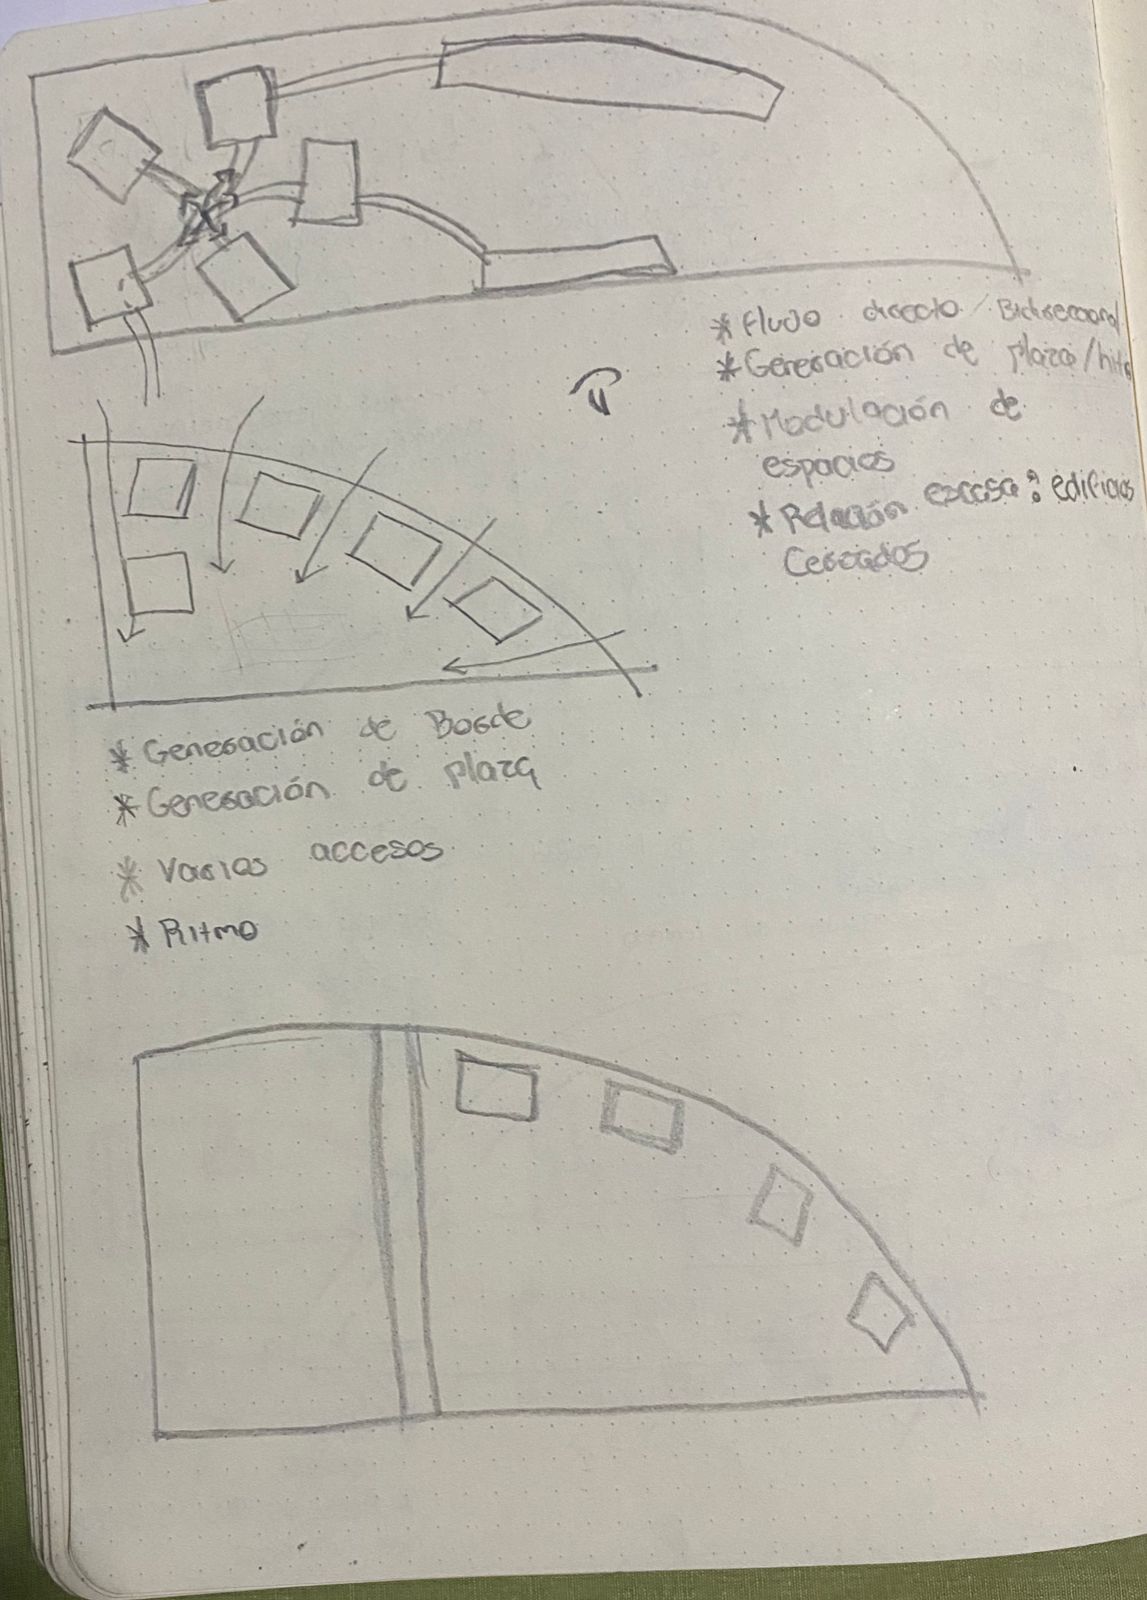 * Flujo directo / Bidireccional
* Generación de plaza/hito
* Modulación de
espacios
* Relación escasa: edificios
Cercados
* Generación de Borde
* Generación de plaza
* Varios accesos
* Ritmo